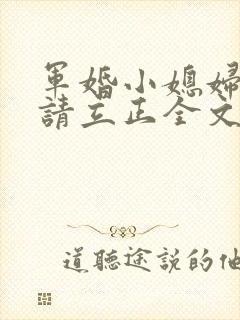 軍婚小媳婦
請立正全文
道聽途說的他